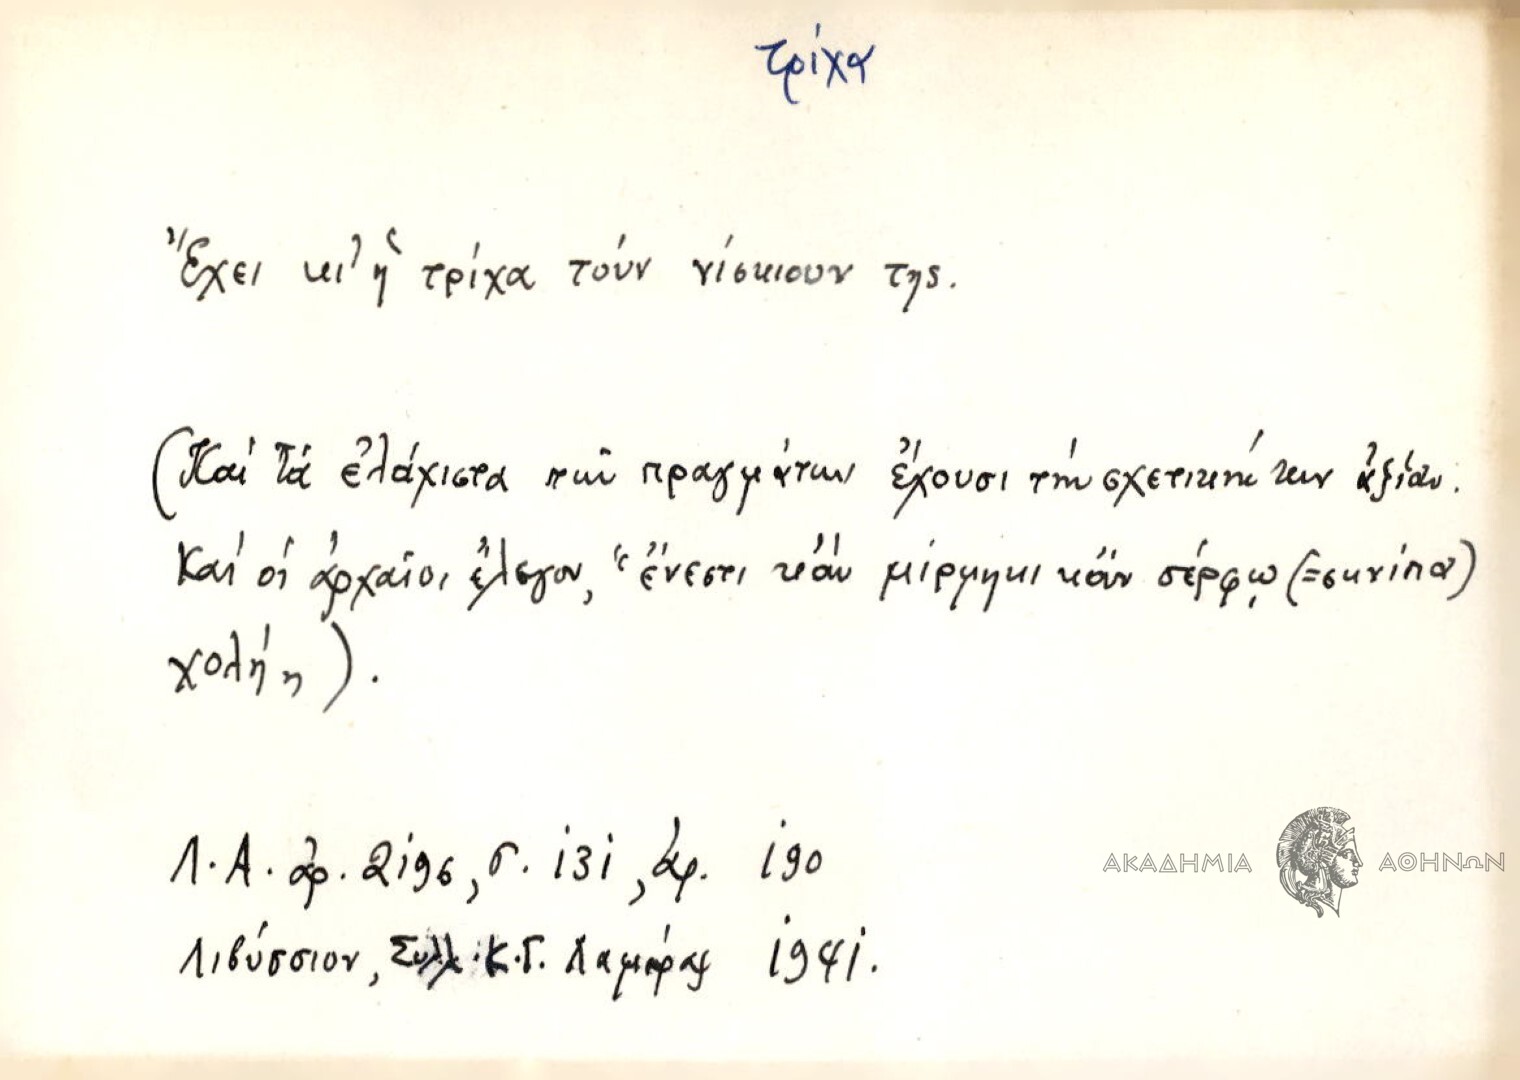 τρίχα
Ἔχει κι' ἡ τρίχα τούν νίσκιουν της.
(Καί τά ἐλάχιστα τῶν πραγμάτων ἔχουσι τήν σχετικήν των ἀξίαν.
Καί οἱ ἀρχαῖοι ἔλεγον, "ἔνεστι κἄν μύρμηκι κἄν σέρφῳ (=σκνίπα)
χολή").
Λ.Α. ἀρ. 2196, σ. 131, ἀρ. 190
Λιβύσσιον, Συλλ. Κ.Γ. 1941.
ΑΚΑΔΗΜΙΑ ΑΘΗΝΩΝ